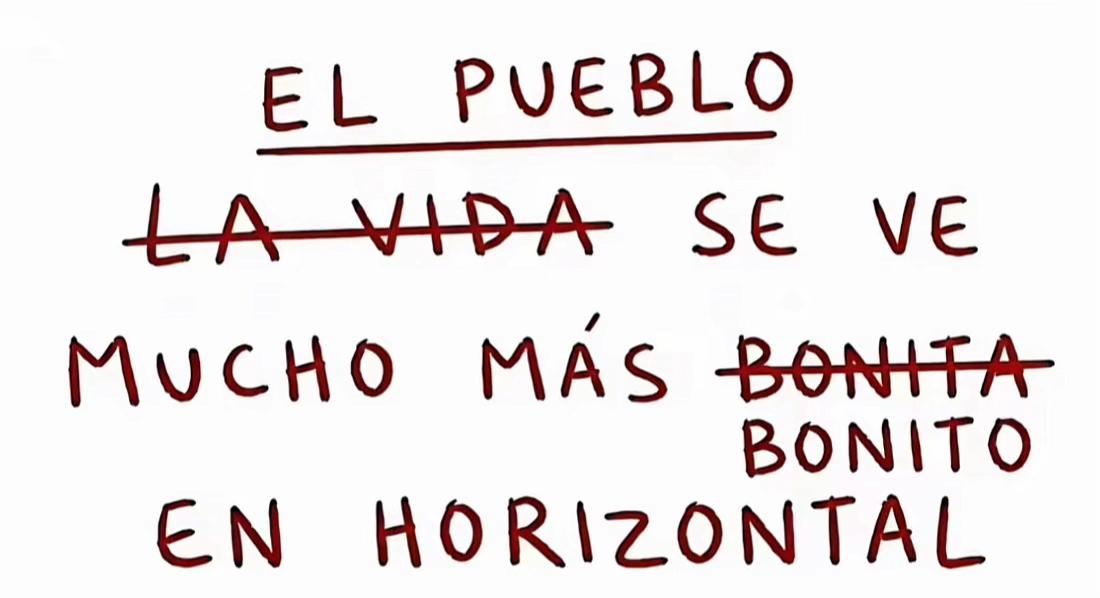 EL PUEBLO
LA VIDA SE VE
MUCHO MÁS BONITA
BONITO
EN HORIZONTAL